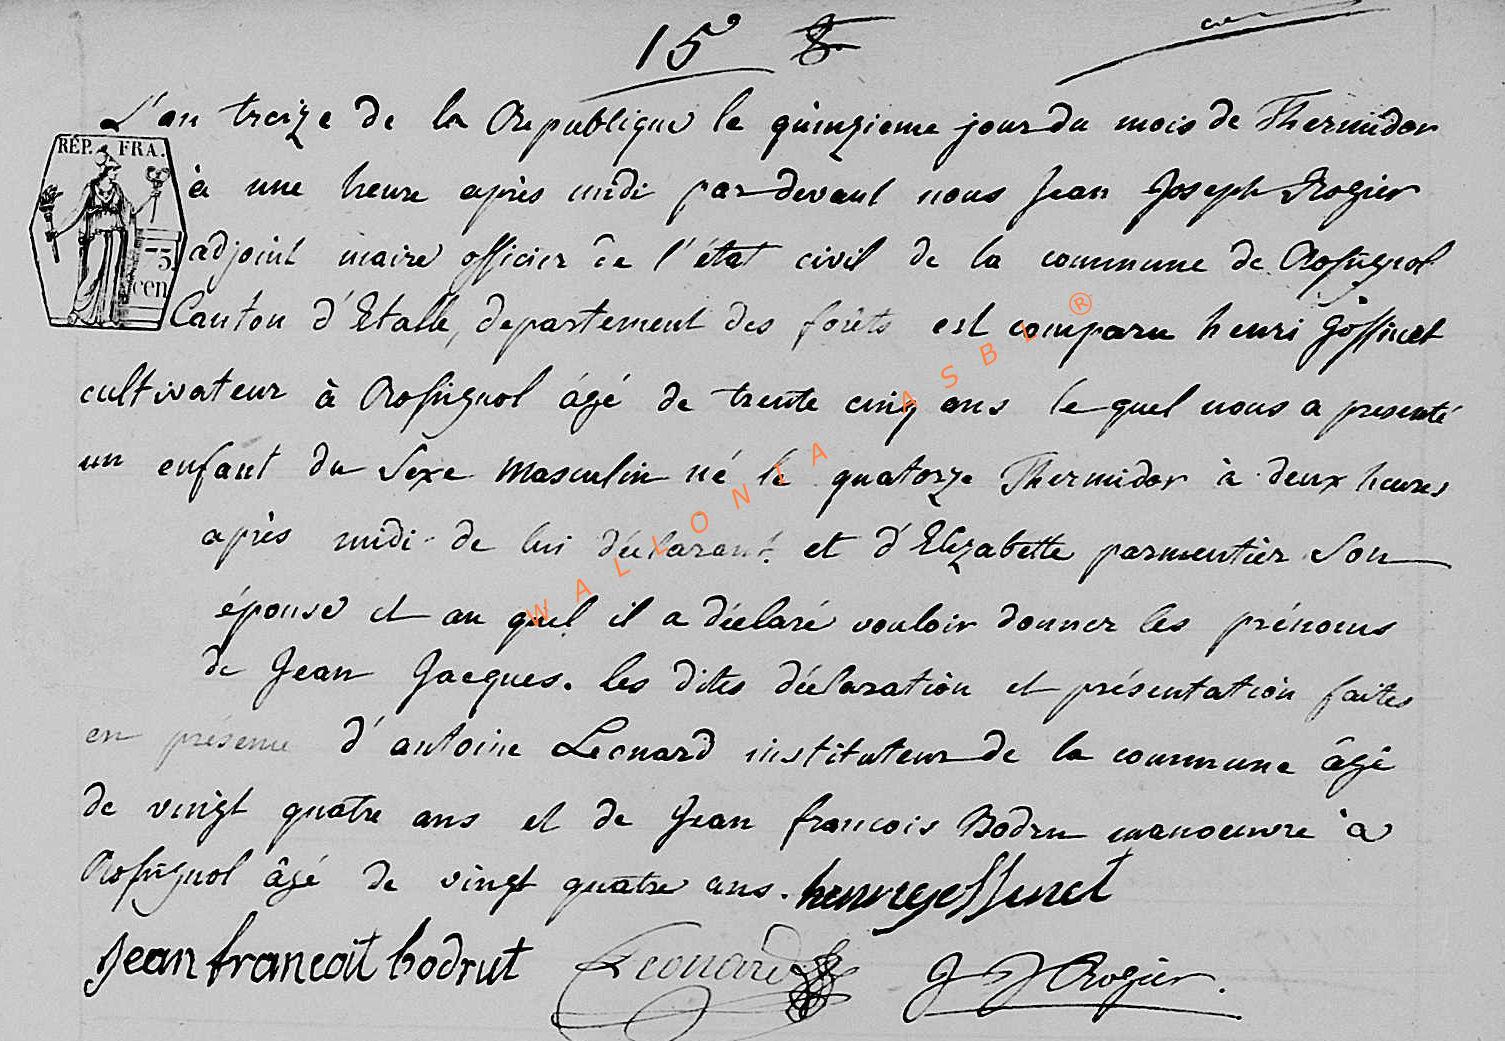 15e
L'an treize de la Republique le quinzieme jour du mois de Thermidor
RÉP. FRA.
à une heure après midi par devant nous Jean Joseph Rogier
adjoint maire officier de l'état civil de la commune de Rossignol
75
cen
Canton d'Etalle, departement des forêts est comparu henri Goffinet
cultivateur à Rossignol âgé de trente cinq ans le quel nous a presenté
un enfant du Sexe Masculin né le quatorze Thermidor à deux heures
après midi de lui déclarant et d'Elizabette parmentier Son
épouse et au quel il a déclaré vouloir donner les prénoms
de Jean Jacques. les dites déclaration et présentation faites
en présence d'antoine Leonard instituteur de la commune âgé
de vingt quatre ans et de Jean francois Bodru manoeuvre à
Rossignol âgé de vingt quatre ans. henri gossinet
Jean francoit bodrut Leonard J J Rogier.
WALLONIA ASBL ®